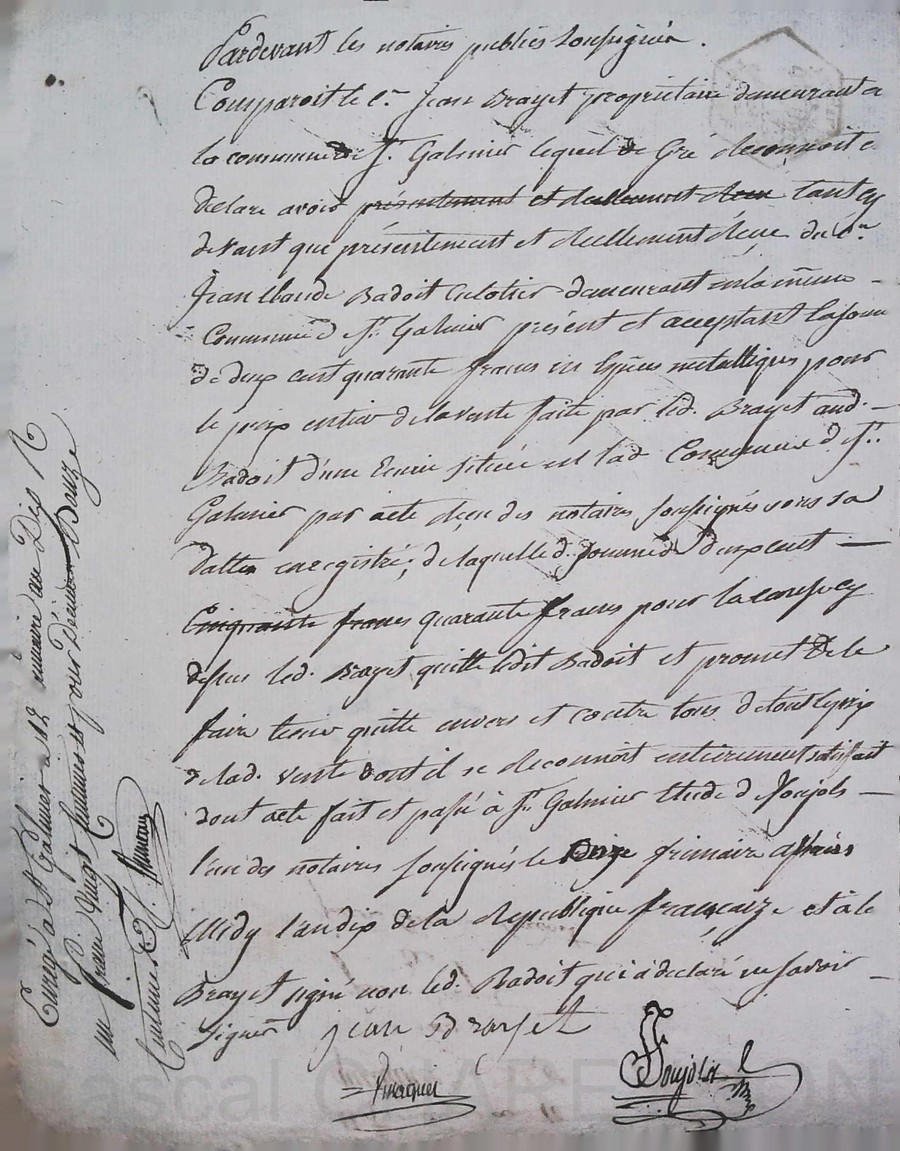 Pardevant les notaires publics soussignés.
Comparoit le Cen Jean Brayet propriétaire demeurant a
la commune de St. Galmier lequel de Gré reconnoit e
declare avoir présentement et réellement reçu tant cy
devant que présentement et réellement reçue du Cen
Jean Claude Badoit Culotier demeurant en la même
Commune de St. Galmier présent et acceptant la somme
de deux cent quarante francs en espèces metalliques pour
le prix entier de la vente faite par led. Brayet aud.
Badoit d'une Ecurie située en lad Commune de St.
Galmier par acte reçu des notaires soussignés sous sa
datte enregistré; de laquelle d. somme de deux cent
Cinquante francs quarante francs pour la cause cy
dessus led. Brayet quitte ledit Badoit et promet de le
faire tenir quitte envers et contre tous de tout le prix
de lad. vente dont il se reconnoit entièrement satisfait
dont acte fait et passé à St. Galmier Etude de Soujols
l'un des notaires soussignés le frimaire après
Midy l'an dix de la Republique françaize et a le
Brayet signé non led. Badoit qui a declaré ne savoir
signer jean Brayet
Soujolx
Enrgé a St Galmier le 12 frimaire an Dix R
un franc vingt Centimes et pour Dixième Douze
Centimes